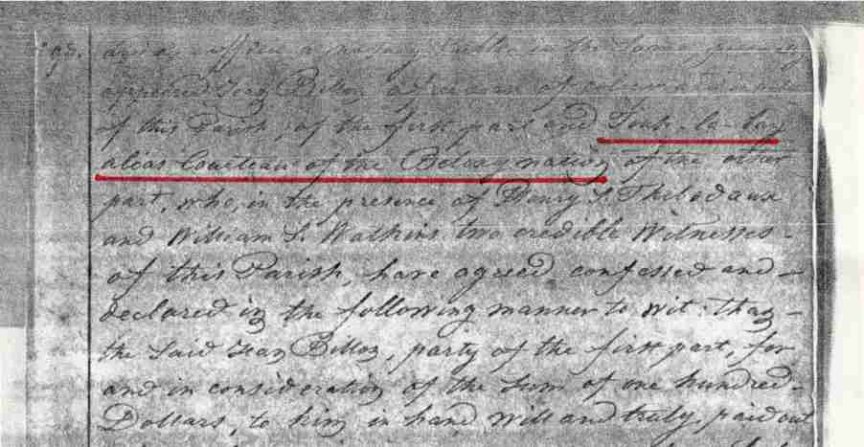 office a notary Public in the
appeared Jean Billot a man of color
of this Parish, of the first part and Touh-la-bay
alias Couiteau of the Beloxy nation of the other
part, who, in the presence of Henry S. Thibodaux
and William S. Watkins two credible Witnesses -
of this Parish, have agreed confessed and -
declared in the following manner to wit: That -
the Said Jean Billot, party of the first part, for
and in consideration of the Sum of one hundred -
Dollars, to him in hand well and truly, paid out